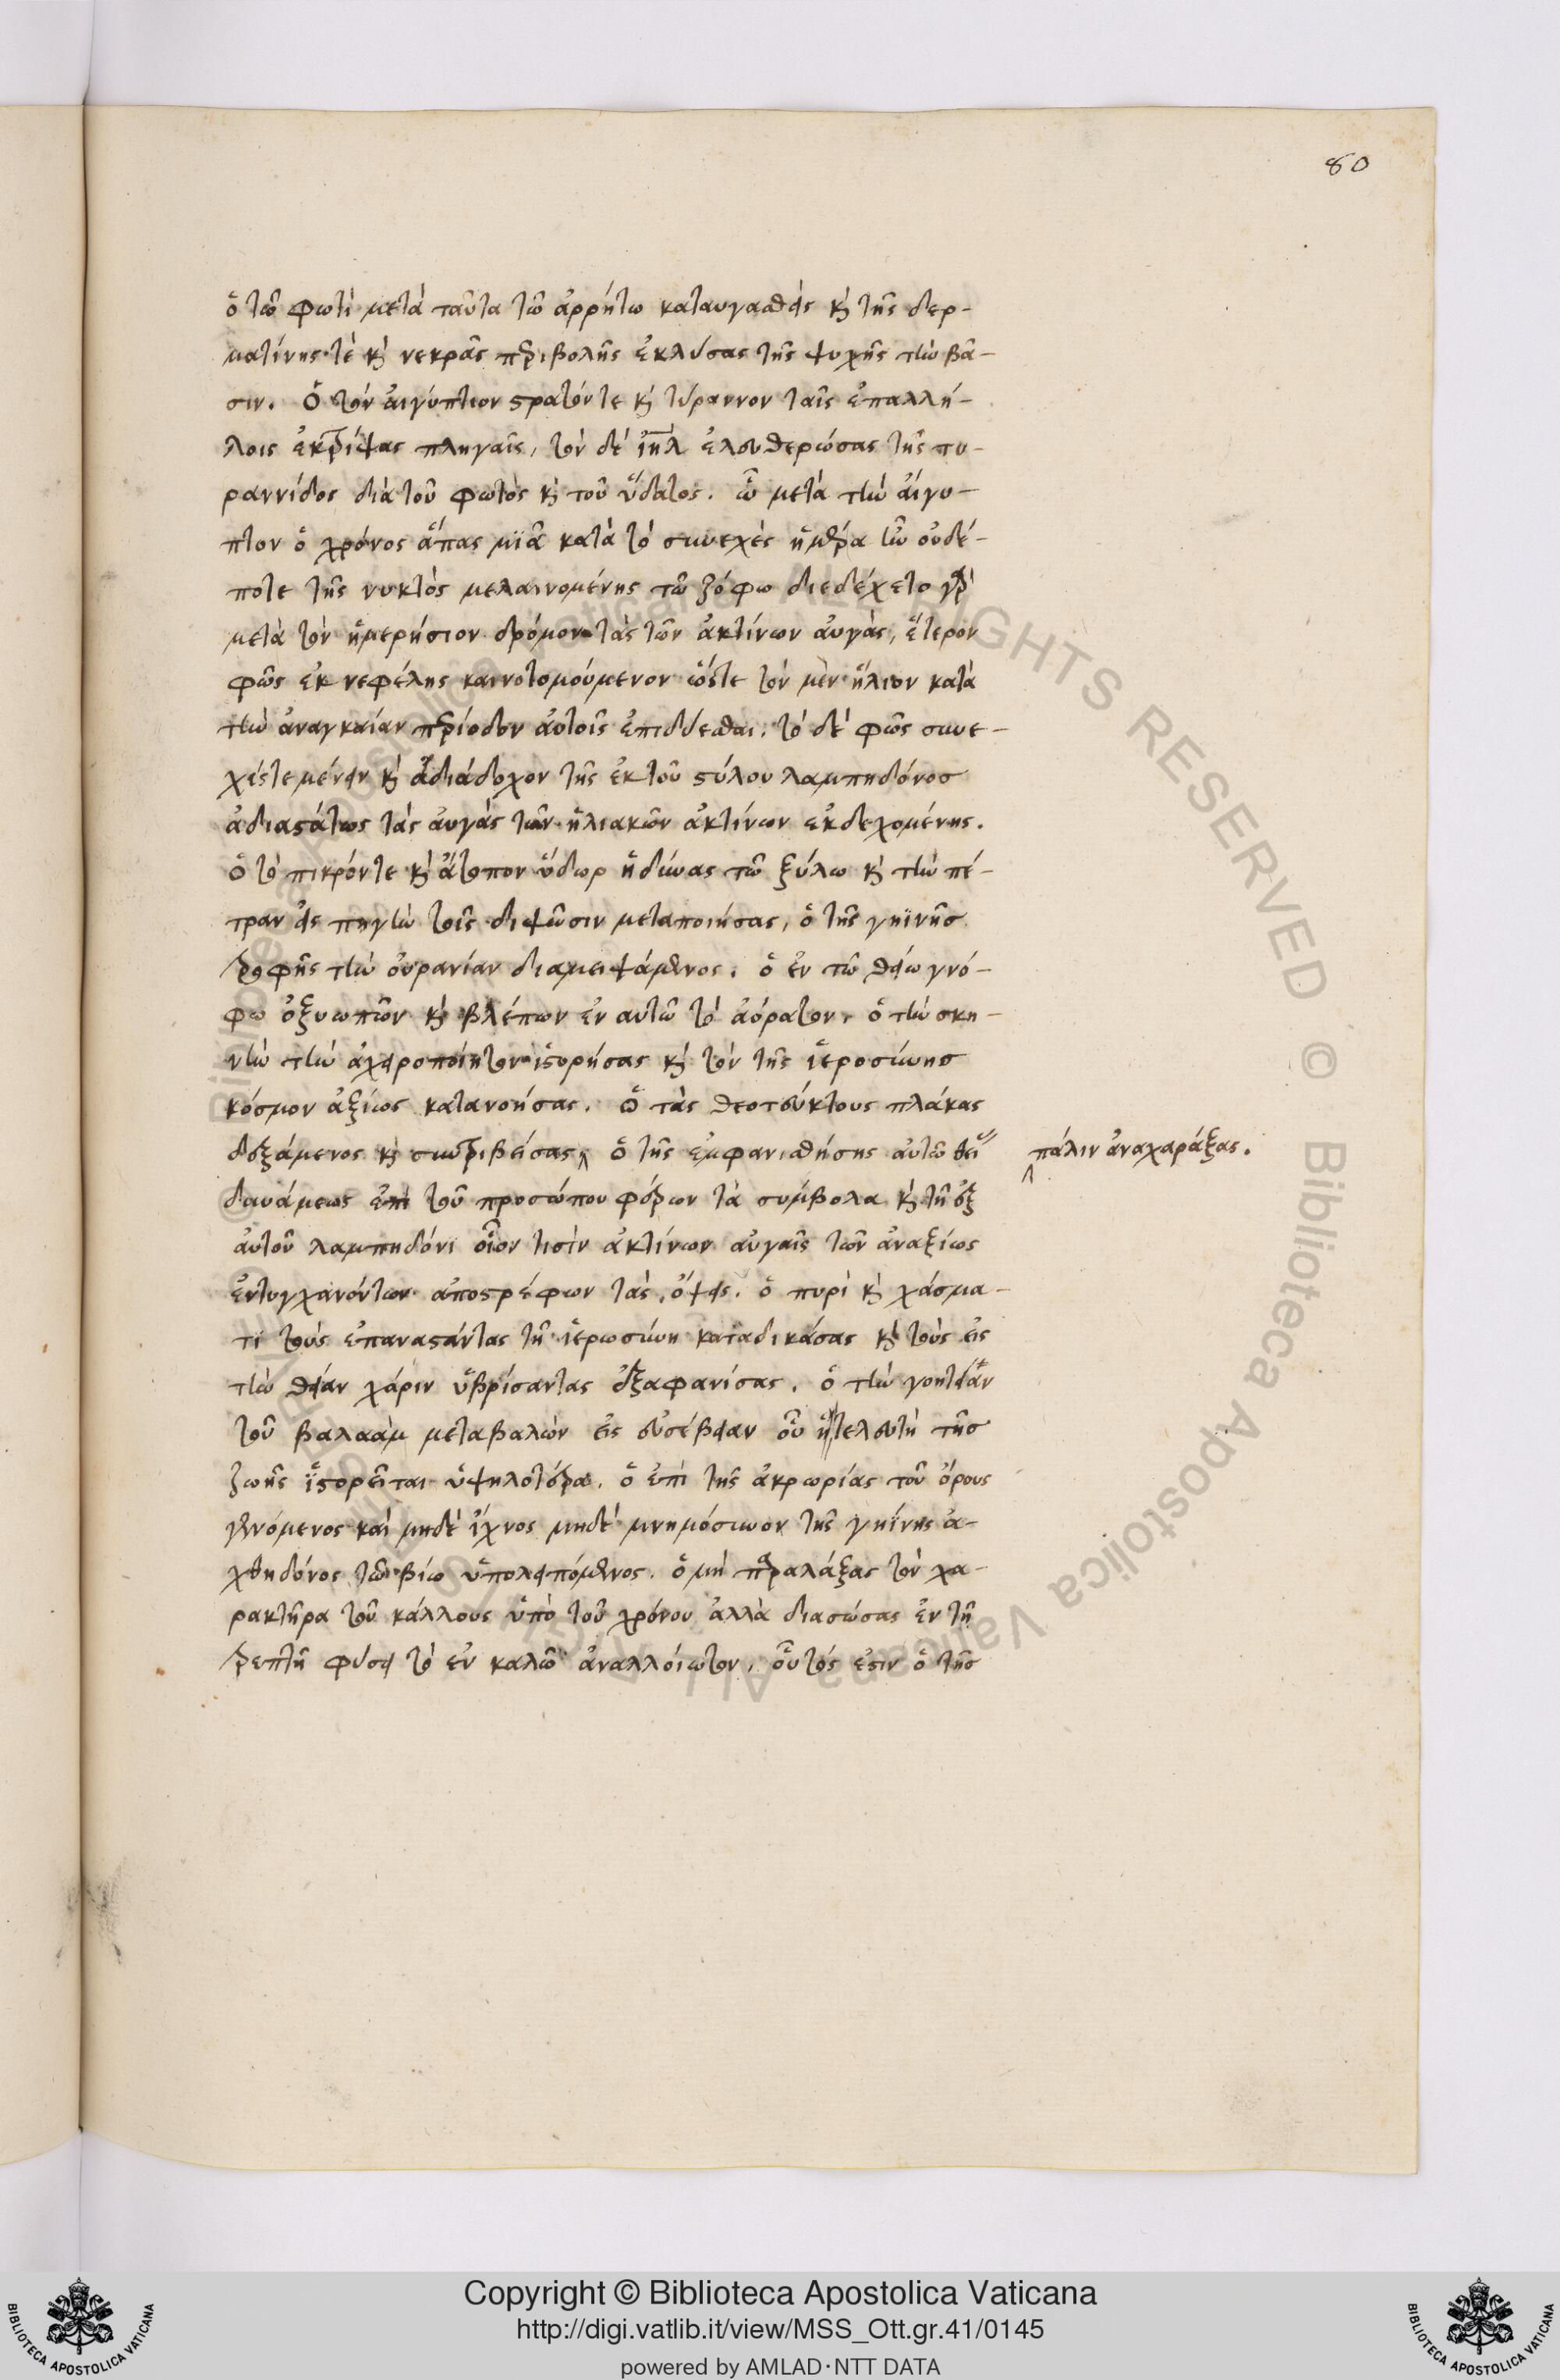 80
ὁ τῶ φωτὶ μετὰ ταῦτα τῶ ἀρρήτω καταυγασθεὶς κὶ τῆς δερ-
ματίνης τὲ κὶ νεκρᾶς περιβολῆς ἐκλύσας τῆς ψυχῆς τὴν βά-
σιν. Ὁ τὸν ἀιγύπτιον στρατόν τε κὶ τύραννον ταῖς ἐπαλλή-
λοις ἐκτρίψας πληγαῖς, τὸν δὲ ἰηλ ἐλευθερώσας τῆς τυ-
ραννίδος διὰ τοῦ φωτὸς κὶ τοῦ ὕδατος. ὧ μετὰ τὴν ἀίγυ-
πτον ὁ χρόνος ἅπας μία κατὰ τὸ συνεχὲς ἡμέρα ἦν οὐδέ-
ποτε τῆς νυκτὸς μελαινομένης τῶ ζόφω διεδέχετο γὰρ
μετὰ τὸν ἡμερήσιον δρόμον τὰς τῶν ἀκτίνων ἀυγὰς, ἕτερον
φῶς ἐκ νεφέλης καινοτομούμενον ὥστε τὸν μὲν ἥλιον κατὰ
τὴν ἀναγκαίαν περίοδον ἀυτοῖς ἐπιδύεσθαι. τὸ δὲ φῶς συνε-
χές τε μένειν κὶ ἀδιάδοχον τῆς ἐκ τοῦ στύλου λαμπηδόνοσ
ἀδιαστάτως τὰς ἀυγὰς τῶν ἡλιακῶν ἀκτίνων ἐκδεχομένης.
ὁ τὸ πικρόν τε κὶ ἄτοπον ὕδωρ ἡδύνας τῶ ξύλω κὶ τὴν πέ-
τραν εἰς πηγὴν τοῖς διψῶσιν μεταποιήσας, ὁ τῆς γηΐνησ
τροφῆς τὴν οὐρανίαν διαμειψάμενος. ὁ ἐν τῶ θείω γνό-
φω ὀξυωπῶν κὶ βλέπων ἐν αυτῶ τὸ ἀόρατον, ὁ τὴν σκη-
νὴν τὴν ἀχειροποίητον ἱστορήσας κὶ τὸν τῆς ἱεροσύνησ
κόσμον ἀξίως κατανοήσας. ὁ τὰς θεοτεύκτους πλάκας
δεξάμενος κὶ συντριβείσας ὁ τῆς ἐμφανισθήσης αὐτῶ θεί
πάλιν ἀναχαράξας.
δυνάμεως ἐπὶ τοῦ προσώπου φέρων τὰ σύμβολα κὶ τῆ ἐξ
ἀυτοῦ λαμπηδόνι οἷον τισὶν ἀκτίνων αὐγαῖς τῶν ἀναξίως
ἐντυγχανόντων ἀποστρέφων τὰς ὄψεις. ὁ πυρὶ κὶ χάσμα-
τι τοὺς ἐπαναστάντας τῆ ἱερωσύνη καταδικάσας κὶ τοὺς εἰς
τὴν θείαν χάριν ὑβρίσαντας ἐξαφανίσας. ὁ τὴν γοητείαν
τοῦ βαλαὰμ μεταβαλὼν εἰς εὐσέβειαν οὗ ἡ τελευτὴ τῆσ
ζωῆς ἱστορεῖται ὑψηλοτέρα. ὁ ἐπὶ τῆς ἀκρωρίας τοῦ ὄρους
γενόμενος καὶ μηδὲ ἴχνος μηδὲ μνημόσυνον τῆς γηίνης ἀ-
χθηδόνος τῶ βίω ὑπολειπόμενος. ὁ μὴ παραλάξας τὸν χα-
ρακτῆρα τοῦ κάλλους ὑπὸ τοῦ χρόνου ἀλλὰ διασώσας ἐν τῆ
τρεπτῆ φύσει τὸ ἐν καλῶ ἀναλλοίωτον, οὗτός ἐστιν ὁ τῆσ
Copyright © Biblioteca Apostolica Vaticana
http://digi.vatlib.it/view/MSS_Ott.gr.41/0145
powered by AMLAD·NTT DATA